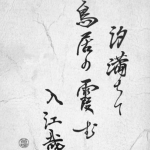 汐満ちて
鳥居の霞む
入江哉